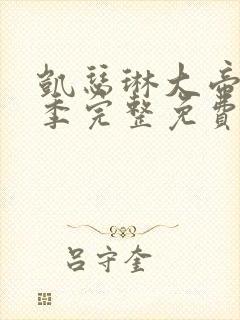 凱瑟琳大帝
季完整免費
呂守奎